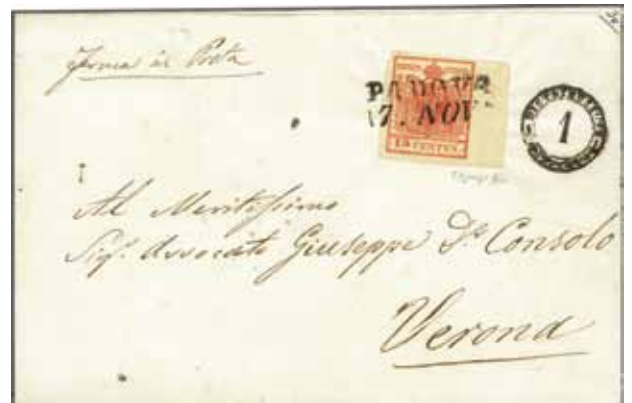 ferma in Posta
PADOVA
17. NOV.
15 CENTES.
DISTRIBUZIONE
1
Al Meritissimo
Sigr. Avvocato Giuseppe Dr. Consolo
Verona